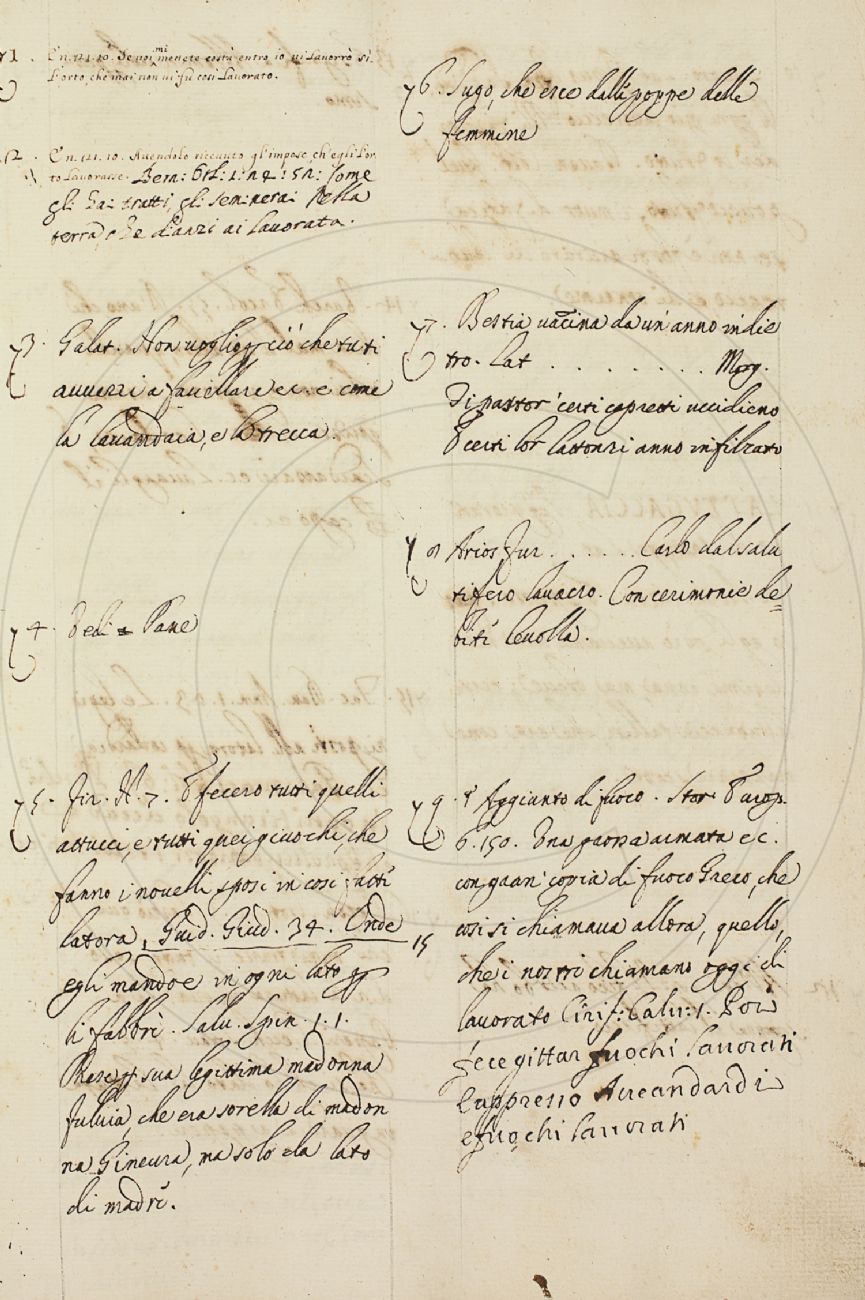 71. En. 121. 10. Se voi mi menete costà entro io vi Lavorrò sì
L'orto, che mai non vi fu così Lavorato.
72. En. 121. 10. Avendolo ricevuto gl'impose, ch'egli l'or
to Lavorasse. Bern: Orl: 1: 24: 51: Come
gli hai tratti, gli seminerai Nella
terra, che dianzi ai lavorata.
73. Galat. Non voglio perciò che tu ti
avvezzi a favellare ec. e come
la lavandaia, e la trecca.
74. Vedi Pane
75. Fir. N. 7. E fecero tutti quelli
attucci, e tutti quei giuochi, che
fanno i novelli sposi in così fatti
latora, Guid. Giud. 34. Onde
15
egli mandoe in ogni lato per
li fabbri. Salv. Spin. 1. 1.
per sua legittima madonna
Fulvia, che era sorella di madon
na Ginevra, ma solo da lato
di madre.
76. Sugo, che esce dalle poppe delle
femmine
77. Bestia vaccina da un'anno indie
tro. Lat . . . . . . . . Morg.
Di pastor' certi capretti uccidieno
E certi lor lattonzi anno infilzato
78 Arios. Fur. . . . . . Carlo dal salu
tifero lavacro. Con cerimonie de=
biti levolla.
79. Aggiunto di fuoco. Stor. Europ.
6. 150. Una grossa armata ec.
con gran' copia di fuoco Greco, che
così si chiamava allora, quello,
che i nostri chiamano oggi di
lavorato Cirif: Calv: 1. Poi
fece gittar fuochi lavorati
E appresso
e fuochi lavorati